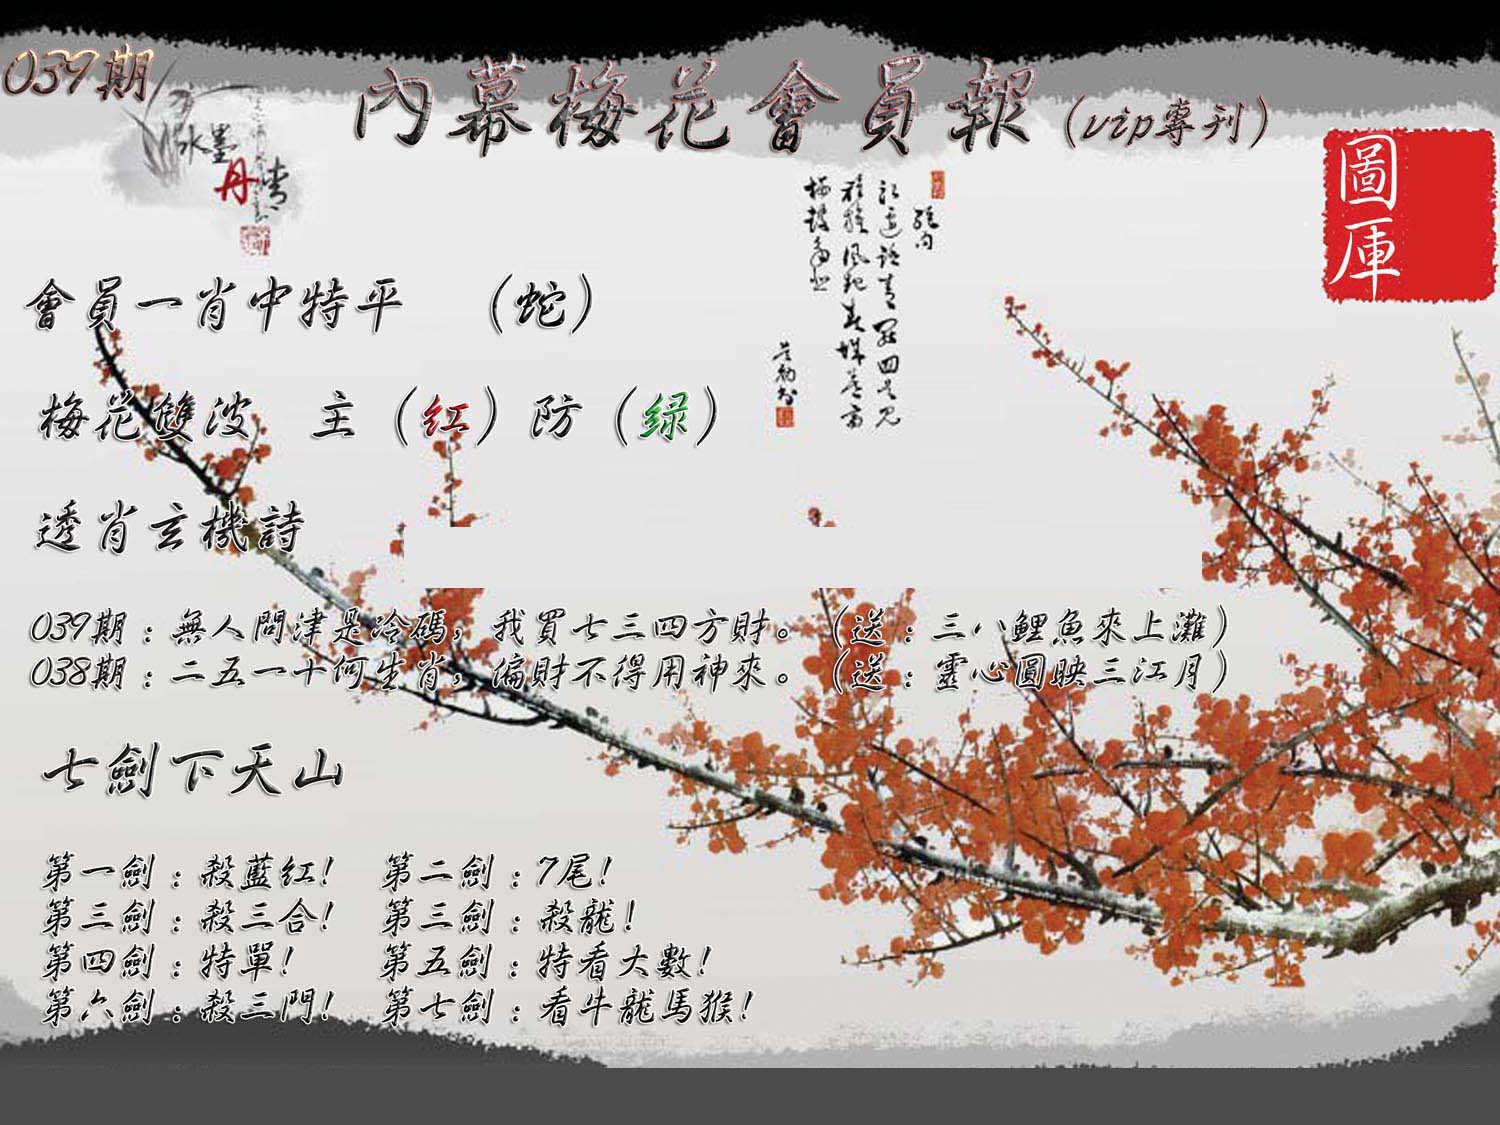 039期
內幕梅花會員報（vip專刊）
水墨
丹青
圖庫
會員一肖中特平　（蛇）
梅花雙波　主（红）防（绿）
透肖玄機詩
039期：無人問津是冷碼，我買七三四方財。（送：三八鯉魚來上灘）
038期：二五一十何生肖，偏財不得用神來。（送：靈心圓映三江月）
七劍下天山
第一劍：殺藍红！　第二劍：7尾！
第三劍：殺三合！　第三劍：殺龍！
第四劍：特單！　第五劍：特看大數！
第六劍：殺三門！　第七劍：看牛龍馬猴！